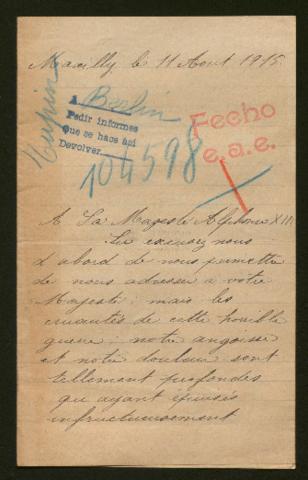 Marcilly le 11 Aout 1915.
A Berlin
Pedir informes
Que se hace así
Devolver
Fecho
e.a.e.
104598
A Sa Majesté Alphonse XIII
Sir excusez nous
d'abord de nous permettre
de nous adresser a votre
Majesté ; mais les
cruautés de cette horrible
guerre : notre angoisse
et notre douleur sont
tellement profondes
qu ayant épuisés
infructueusement